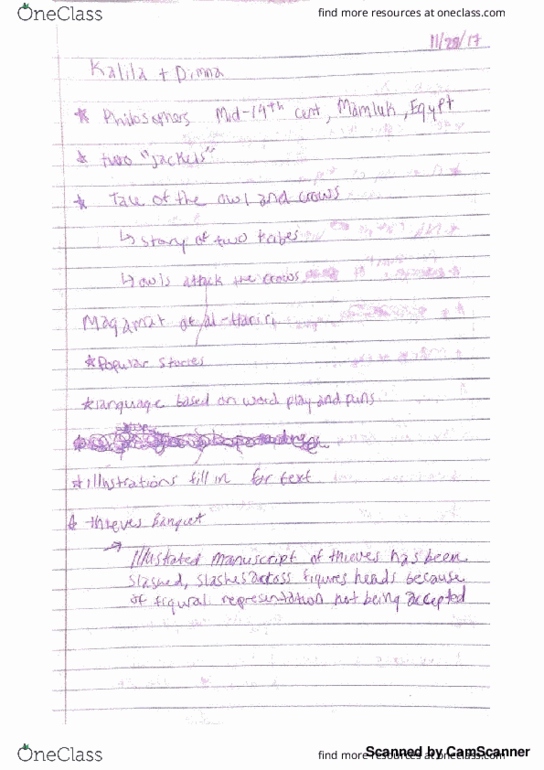 OneClass
find more resources at oneclass.com
11/28/17
Kalila + Dimna
* Philosophers Mid-14th cent, Mamluk, Egypt
* two "jackels"
* Tale of the owl and crows
↳ story of two tribes
↳ owls attack the crows
Maqamat of al-Hariri
*Popular stories
*language based on word play and puns
*illustrations fill in for text
* thieves banquet
→ Illustrated manuscript of thieves has been
slashed, slashes across figures heads because
of figural representation not being accepted
OneClass
find more resources at oneclass.com
Scanned by CamScanner